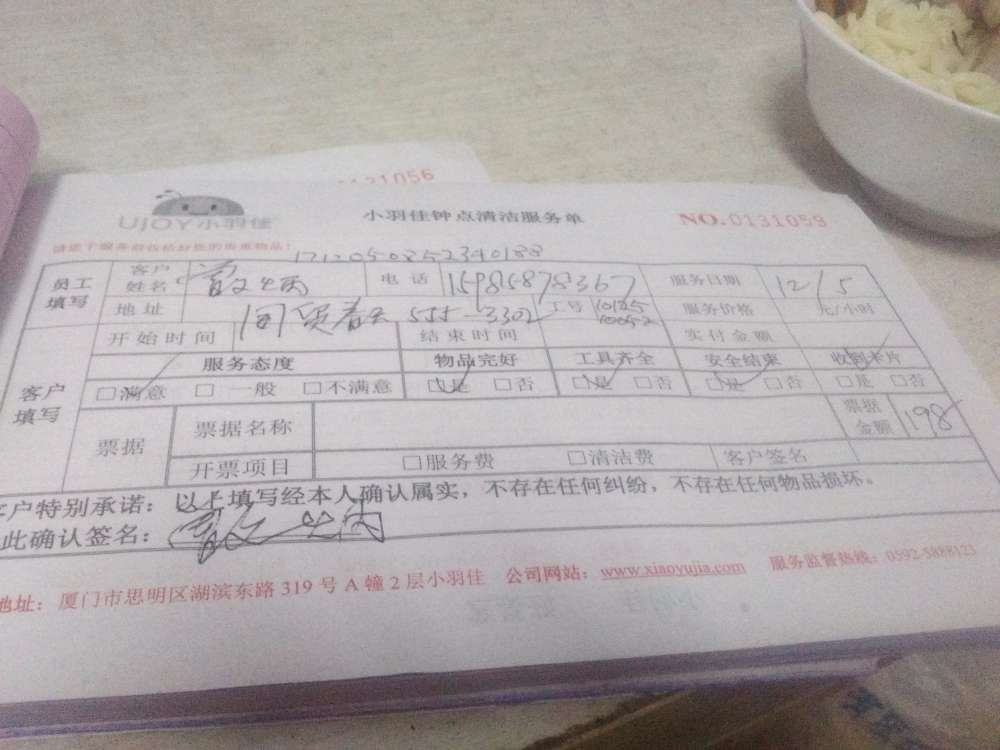 0131056
UJOY小羽佳
小羽佳钟点清洁服务单
NO.0131059
请您于服务前收拾好您的贵重物品:
1712050852340188
员工填写 客户姓名 电话 15985878367 服务日期 12/5
地址 国贸春天 555-3302 工号 10125 10052 服务价格 元/小时
客户填写 开始时间 结束时间 实付金额
服务态度 物品完好 工具齐全 安全结束 收到卡片
□满意 □一般 □不满意 □是 □否 □是 □否 □是 □否 □是 □否
票据 票据名称 票据金额 198
开票项目 □服务费 □清洁费 客户签名
客户特别承诺:以上填写经本人确认属实,不存在任何纠纷,不存在任何物品损坏。
此确认签名:
地址:厦门市思明区湖滨东路 319 号 A 幢 2 层小羽佳 公司网站:www.xiaoyujia.com 服务监督热线:0592-5888123